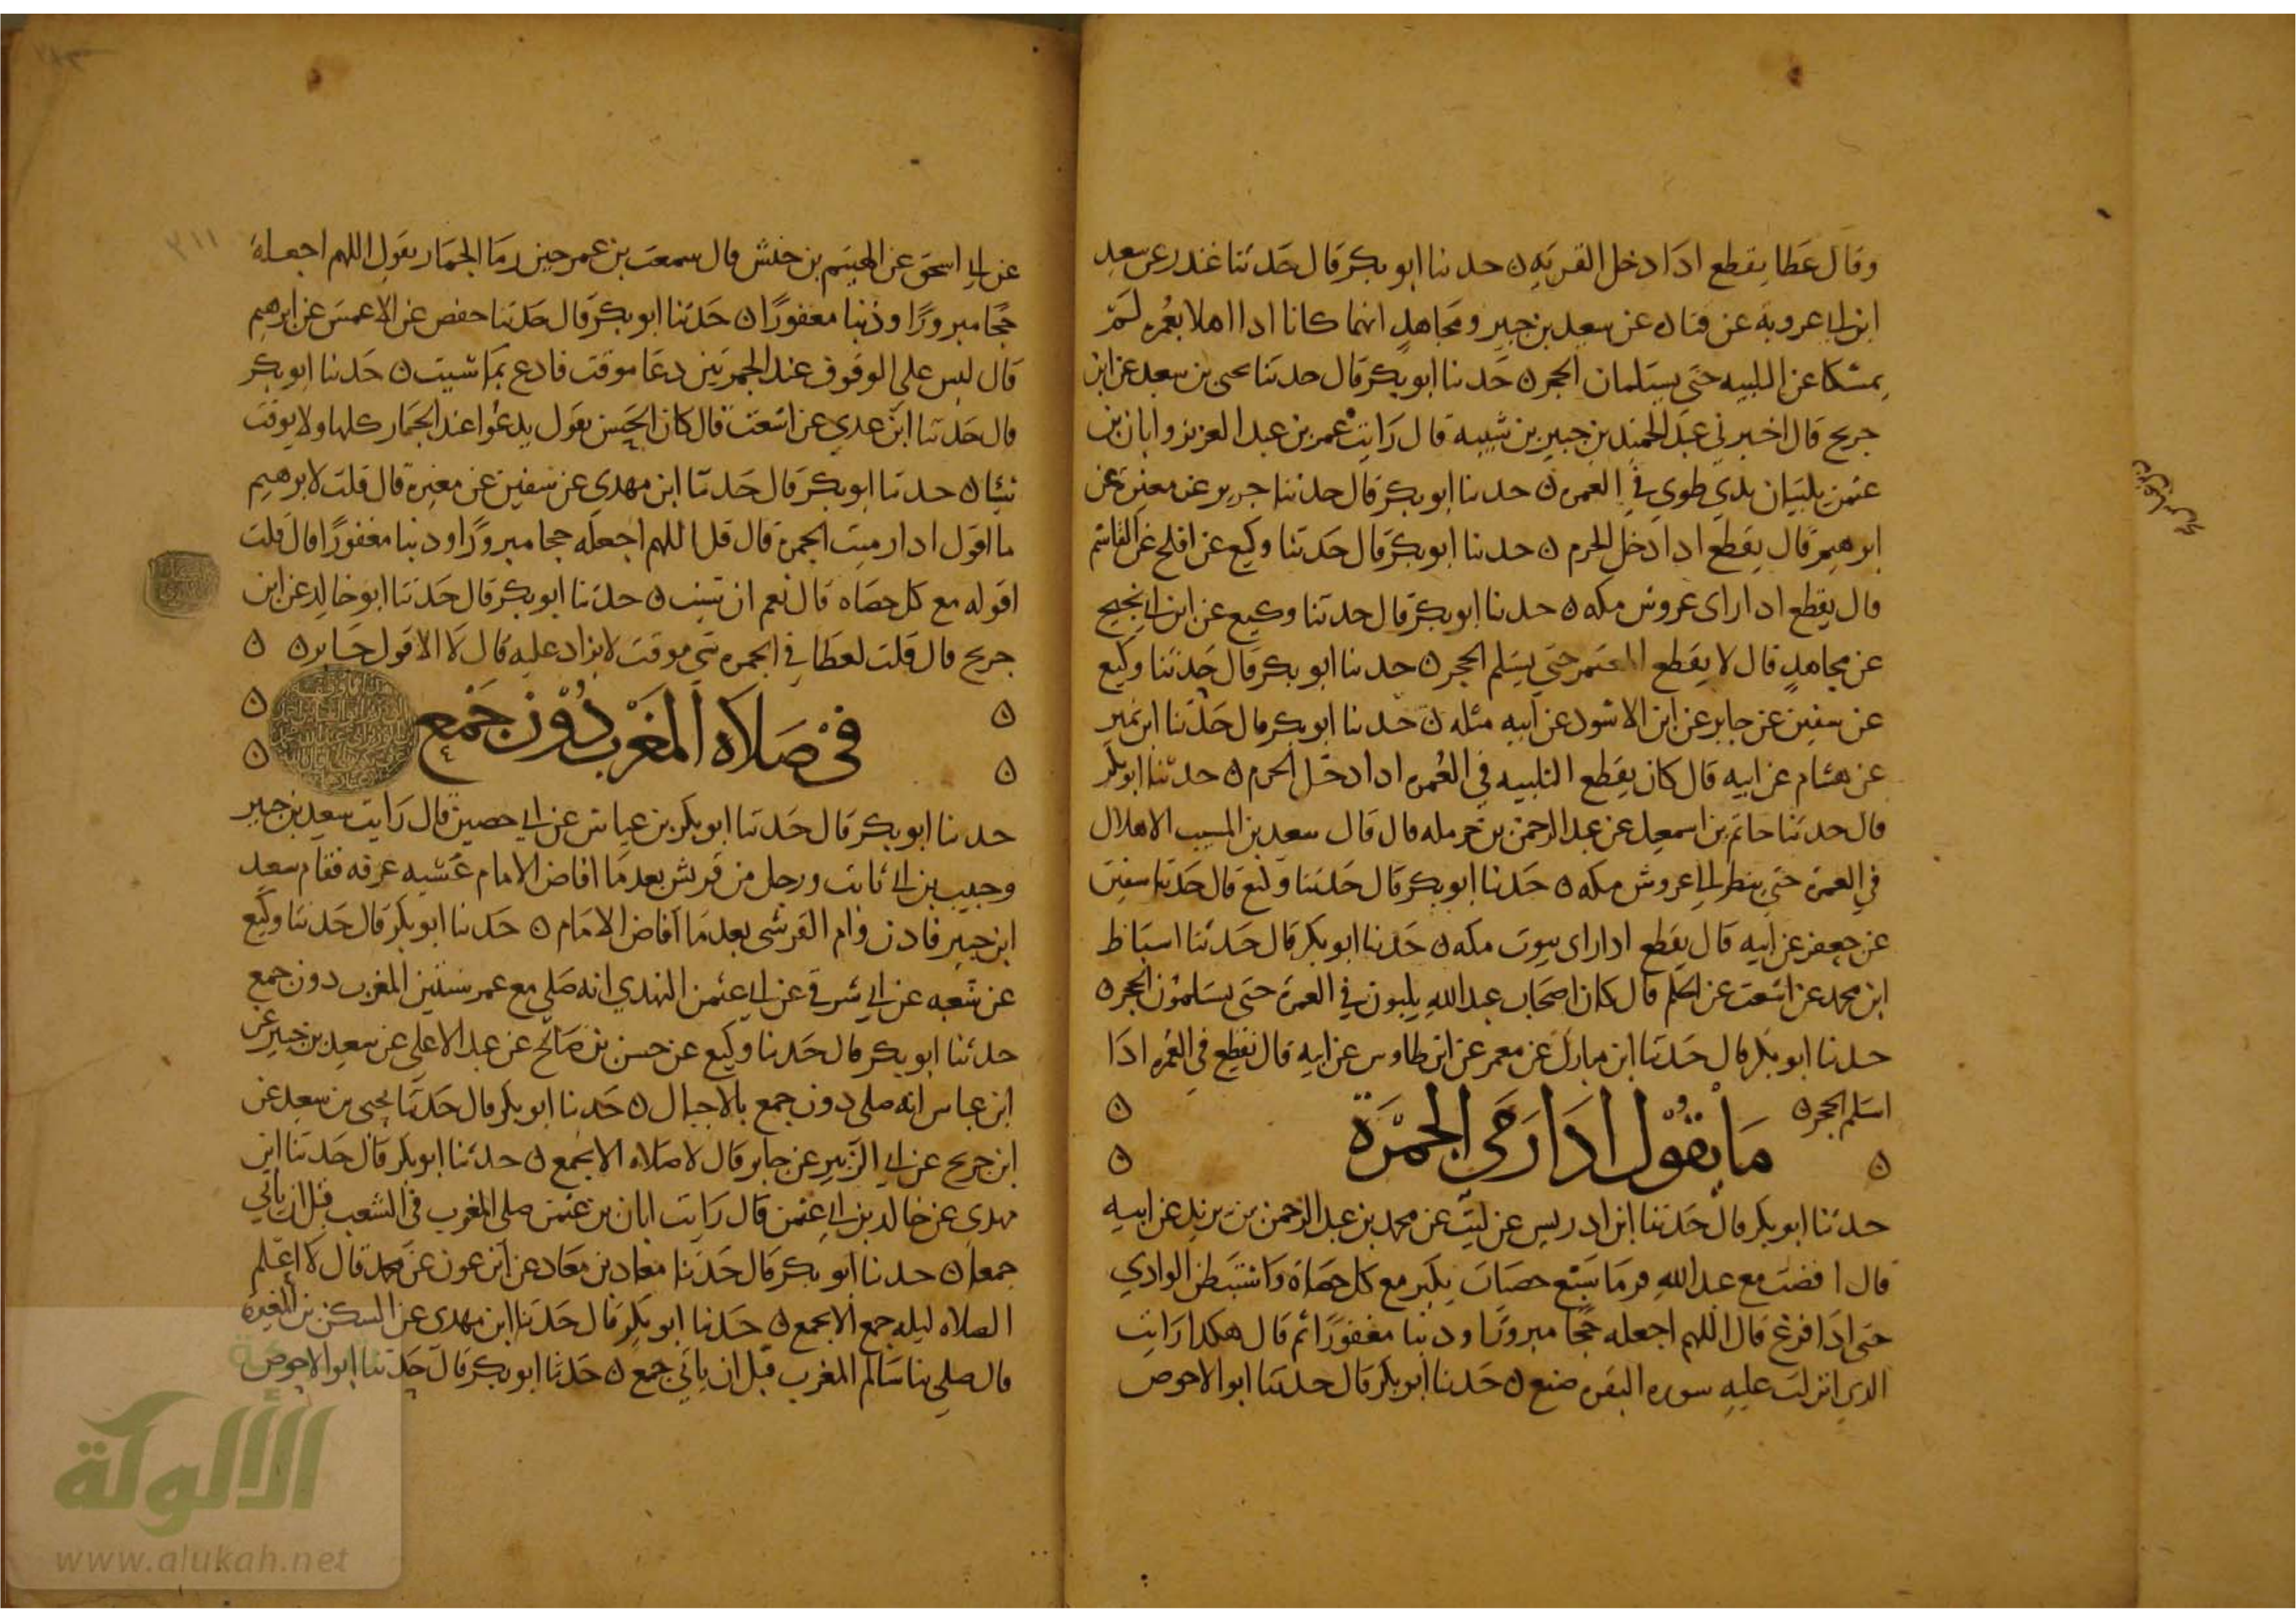 وقال عطا يقطع ادا دخل القريه ن حدنا ابو بكر قال حدثنا غندر عن سعيد
ابن ابي عروبة عن قتاده عن سعيد بن جبير ومجاهد انهما كانا ادا اهلا بعمره لم
يمسكا عن التلبيه حتى يستلمان الحجر ن حدنا ابو بكر قال حدتنا يحيى بن سعيد عن ابن
جريج قال اخبرني عبد الحميد بن جبير بن شيبه قال رايت عمر بن عبد العزيز وابان بن
عثمن يلبيان بدي طوى في العمره ن حدنا ابو بكر قال حدثنا جرير عن مغيرة عن
ابرهيم قال يقطع ادا دخل الحرم ن حدنا ابو بكر قال حدثنا وكيع عن افلح عن القاسم
قال يقطع ادا راى عروش مكه ن حدنا ابو بكر قال حدثنا وكيع عن ابن ابي نجيح
عن مجاهد قال لا يقطع المعتمر حتى يستلم الحجر ن حدنا ابو بكر قال حدثنا وكيع
عن سفين عن جابر عن ابن الاسود عن ابيه مثله ن حدنا ابو بكر قال حدثنا ابن نمير
عن هشام عن ابيه قال كان يقطع التلبيه في العمره ادا دخل الحرم ن حدثنا ابو بكر
قال حدثنا حاتم بن اسمعيل عن عبد الرحمن بن حرمله قال قال سعيد بن المسيب الاهلال
في العمرة حتى ينظر الى عروش مكه ن حدنا ابو بكر قال حدثنا وكيع قال حدثنا سفين
عن جعفر عن ابيه قال يقطع ادا راى بيوت مكه ن حدنا ابو بكر قال حدثنا اسباط
ابن محمد عن اشعث عن الحكم قال كان اصحاب عبد الله يلبون في العمرة حتى يستلمون الحجر ن
حدنا ابو بكر قال حدثنا ابن مبارك عن معمر عن ابن طاوس عن ابيه قال تقطع في العمره ادا
استلم الحجر ن
ما يقول ادا رمى الجمرة
حدثنا ابو بكر قال حدثنا ابن ادريس عن ليث عن محمد بن عبد الرحمن بن يزيد عن ابيه
قال افضت مع عبد الله فرما بسبع حصيات يكبر مع كل حصاة واستبطن الوادي
حتى ادا فرغ قال اللهم اجعله حجا مبرورا ودنبا مغفورا ثم قال هكدا رايت
الدي انزلت عليه سوره البقره صنع ن حدنا ابو بكر قال حدثنا ابو الاحوص
عن ابي اسحق عن الهيثم بن حنش قال سمعت بن عمر حين رما الجمار يقول اللهم اجعله
حجا مبرورا وذنبا مغفورا ن حدثنا ابو بكر قال حدثنا حفص عن الاعمش عن ابرهيم
قال ليس على الوقوف عند الجمرتين دعا موقت فادع بما شيت ن حدنا ابو بكر
قال حدثنا ابن عدي عن اشعث قال كان الحسن يقول يدعوا عند الجمار كلها ولا يوقت
شيئا ن حدثنا ابو بكر قال حدثنا ابن مهدي عن سفين عن مغيرة قال قلت لابرهيم
ما اقول ادا رميت الجمرة قال قل اللهم اجعله حجا مبرورا ودنبا مغفورا قال قلت
اقوله مع كل حصاه قال نعم ان شيت ن حدثنا ابو بكر قال حدثنا ابو خالد عن ابن
جريج قال قلت لعطا في الجمره شي موقت لا يزاد عليه قال لا الا قول جابر ن
في صلاه المغرب دون جمع
حدنا ابو بكر قال حدثنا ابو بكر بن عياش عن ابي حصين قال رايت سعيد بن جبير
وحبيب بن ابي ثابت ورجل من قريش بعد ما افاض الامام عشيه عرفه فقام سعيد
ابن جبير فادن وام القرشى بعد ما افاض الامام ن حدنا ابو بكر قال حدثنا وكيع
عن شعبه عن ابي شرقي عن ابي عثمن النهدي انه صلى مع عمر سنتين المغرب دون جمع
حدثنا ابو بكر قال حدنا وكيع عن حسن بن صالح عن عبد الاعلى عن سعيد بن جبير عن
ابن عباس انه صلى دون جمع بالاجبال ن حدنا ابو بكر قال حدثنا يحيى بن سعيد عن
ابن جريج عن ابي الزبير عن جابر قال لا صلاه الا بجمع ن حدثنا ابو بكر قال حدثنا ابن
مهدي عن خالد بن ابي عثمن قال رايت ابان بن عثمن صلى المغرب في الشعب قبل ان ياتي
جمعا ن حدنا ابو بكر قال حدثنا معاد بن معاد عن ابن عون عن محمد قال لا اعلم
الصلاه ليله جمع الا بجمع ن حدنا ابو بكر قال حدثنا ابن مهدى عن السكن بن المغيره
قال صلى بنا سالم المغرب قبل ان ياتي جمع ن حدثنا ابو بكر قال حدثنا ابو الاحوص
الألوكة
www.alukah.net